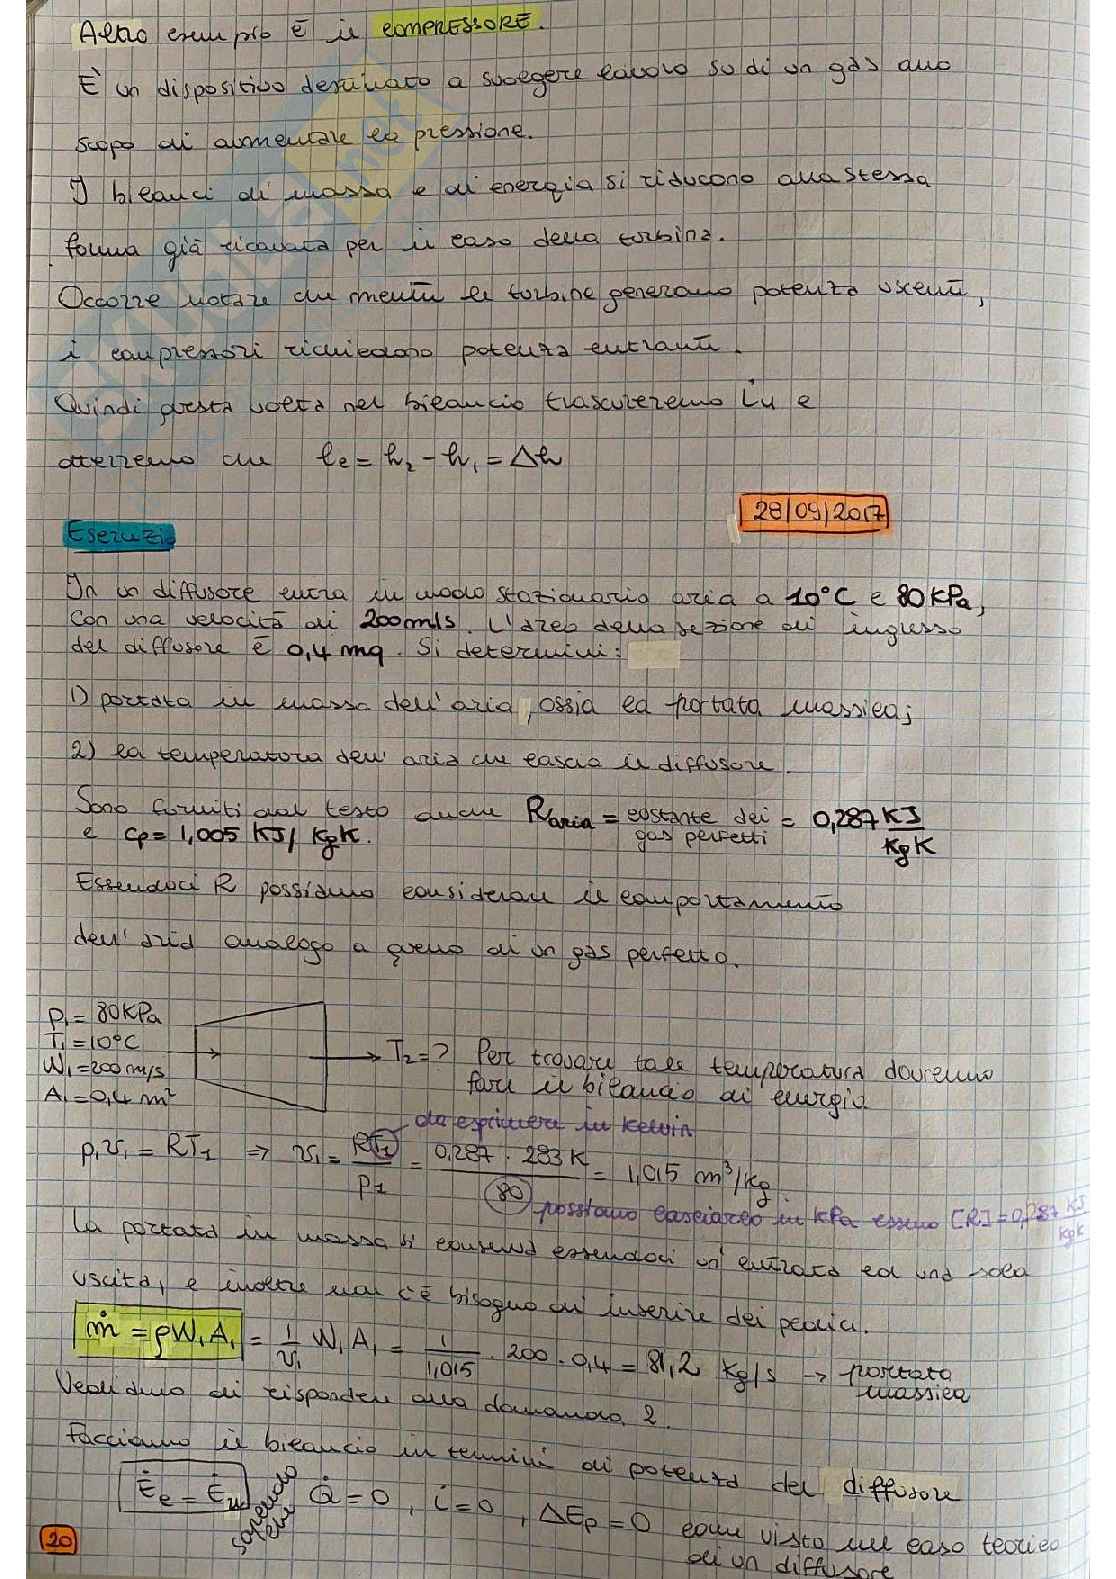 Altro esempio è il COMPRESSORE.
È un dispositivo destinato a svolgere lavoro su di un gas allo
scopo di aumentare la pressione.
I bilanci di massa e di energia si riducono alla stessa
forma già ricavata per il caso della turbina.
Occorre notare che mentre le turbine generano potenza uscente,
i compressori richiedono potenza entrante.
Quindi questa volta nel bilancio trascureremo Lu e
otterremo che le = h₂ - h₁ = Δh
28/09/2017
Esercizio
In un diffusore entra in modo stazionario aria a 10°C e 80 kPa,
con una velocità di 200m/s. L'area della sezione di ingresso
del diffusore è 0,4 mq. Si determini:
1) portata in massa dell'aria, ossia la portata massica;
2) la temperatura dell'aria che lascia il diffusore.
Sono forniti dal testo anche Raria = costante dei gas perfetti = 0,287 KJ/KgK
e cp = 1,005 KJ/KgK.
Essendoci R possiamo considerare il comportamento
dell'aria analogo a quello di un gas perfetto.
p₁ = 80 KPa
T₁ = 10°C
W₁ = 200 m/s
A₁ = 0,4 m²
T₂ = ? Per trovare tale temperatura dovremo
fare il bilancio di energia
da esprimere in Kelvin
p₁v₁ = RT₁ => v₁ = RT₁/p₁ = 0,287 · 283 K/80 = 1,015 m³/kg.
possiamo lasciarlo in kPa essendo [R] = 0,287 KJ/KgK
La portata in massa si conserva essendoci un'entrata ed una sola
uscita, e inoltre non c'è bisogno di inserire dei pedici.
ṁ = ρW₁A₁ = 1/v₁ W₁A₁ = 1/1,015 · 200 · 0,4 = 81,2 Kg/s → portata massica
Vediamo di rispondere alla domanda 2.
Facciamo il bilancio in termini di potenza del diffusore
Ėe = Ėu sapendo che Q̇ = 0, L̇ = 0, ΔEp = 0 come visto nel caso teorico
di un diffusore
20